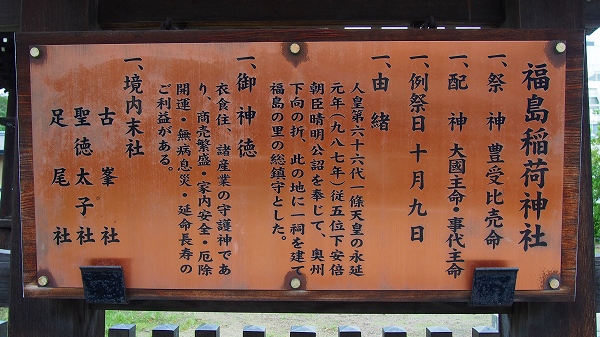 福島稲荷神社
一、祭神 豊受比売命
一、配神 大國主命・事代主命
一、例祭日 十月九日
一、由緒
人皇第六十六代一條天皇の永延
元年(九八七年)従五位下安倍
朝臣晴明公詔を奉じて、奥州
下向の折、此の地に一祠を建て
福島の里の総鎮守とした。
一、御神徳
衣食住、諸産業の守護神であ
り、商売繁盛・家内安全・厄除
開運・無病息災・延命長寿の
ご利益がある。
一、境内末社
古峯社
聖徳太子社
足尾社